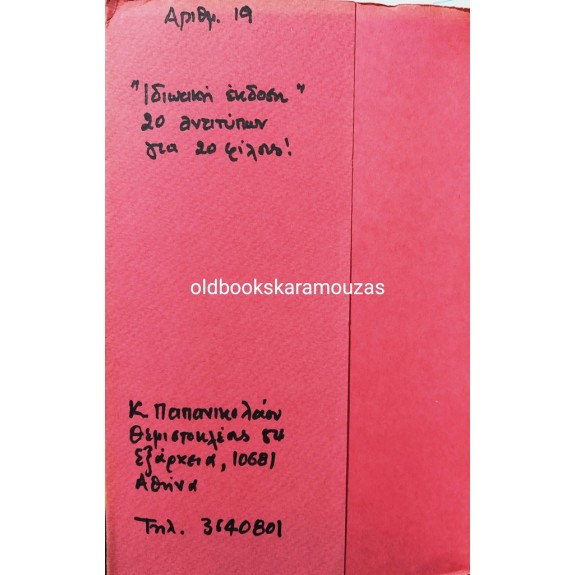 Αριθμ. 19
"Ιδιωτική έκδοση"
20 αντιτύπων
για 20 φίλους!
oldbookskaramouzas
Κ. Παπανικολάου
Θεμιστοκλέους 84
Εξάρχεια, 10681
Αθήνα
Τηλ. 3640801